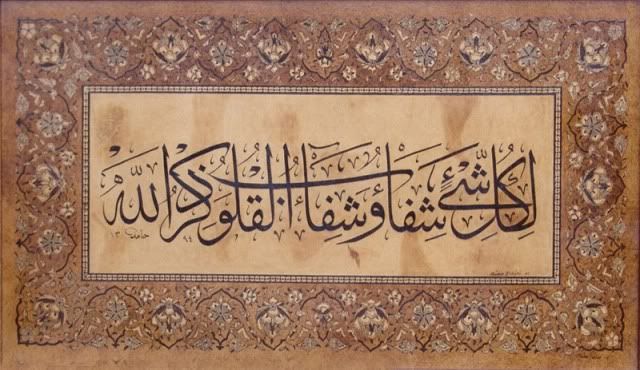 لِكُلِّ شَيْءٍ شِفَاءٌ وَشِفَاءُ الْقُلُوبِ ذِكْرُ اللّٰه
حامد ١٣٩٤